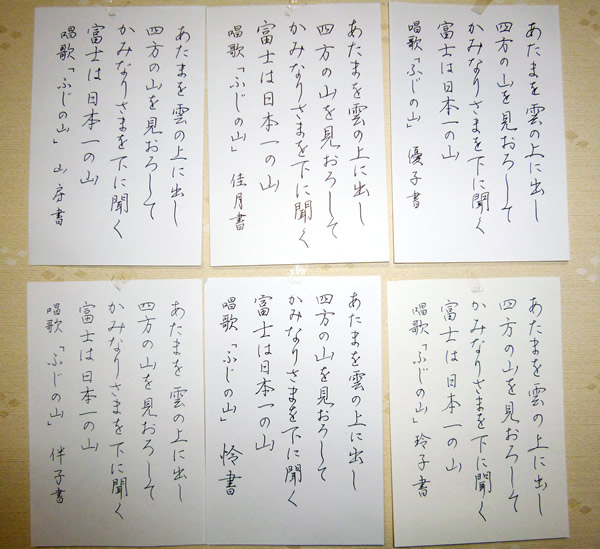 あたまを雲の上に出し
四方の山を見おろして
かみなりさまを下に聞く
富士は日本一の山
唱歌「ふじの山」 優子書
あたまを雲の上に出し
四方の山を見おろして
かみなりさまを下に聞く
富士は日本一の山
唱歌「ふじの山」 佳月書
あたまを雲の上に出し
四方の山を見おろして
かみなりさまを下に聞く
富士は日本一の山
唱歌「ふじの山」 山房書
あたまを雲の上に出し
四方の山を見おろして
かみなりさまを下に聞く
富士は日本一の山
唱歌「ふじの山」 玲子書
あたまを雲の上に出し
四方の山を見おろして
かみなりさまを下に聞く
富士は日本一の山
唱歌「ふじの山」 怜書
あたまを雲の上に出し
四方の山を見おろして
かみなりさまを下に聞く
富士は日本一の山
唱歌「ふじの山」 伴子書